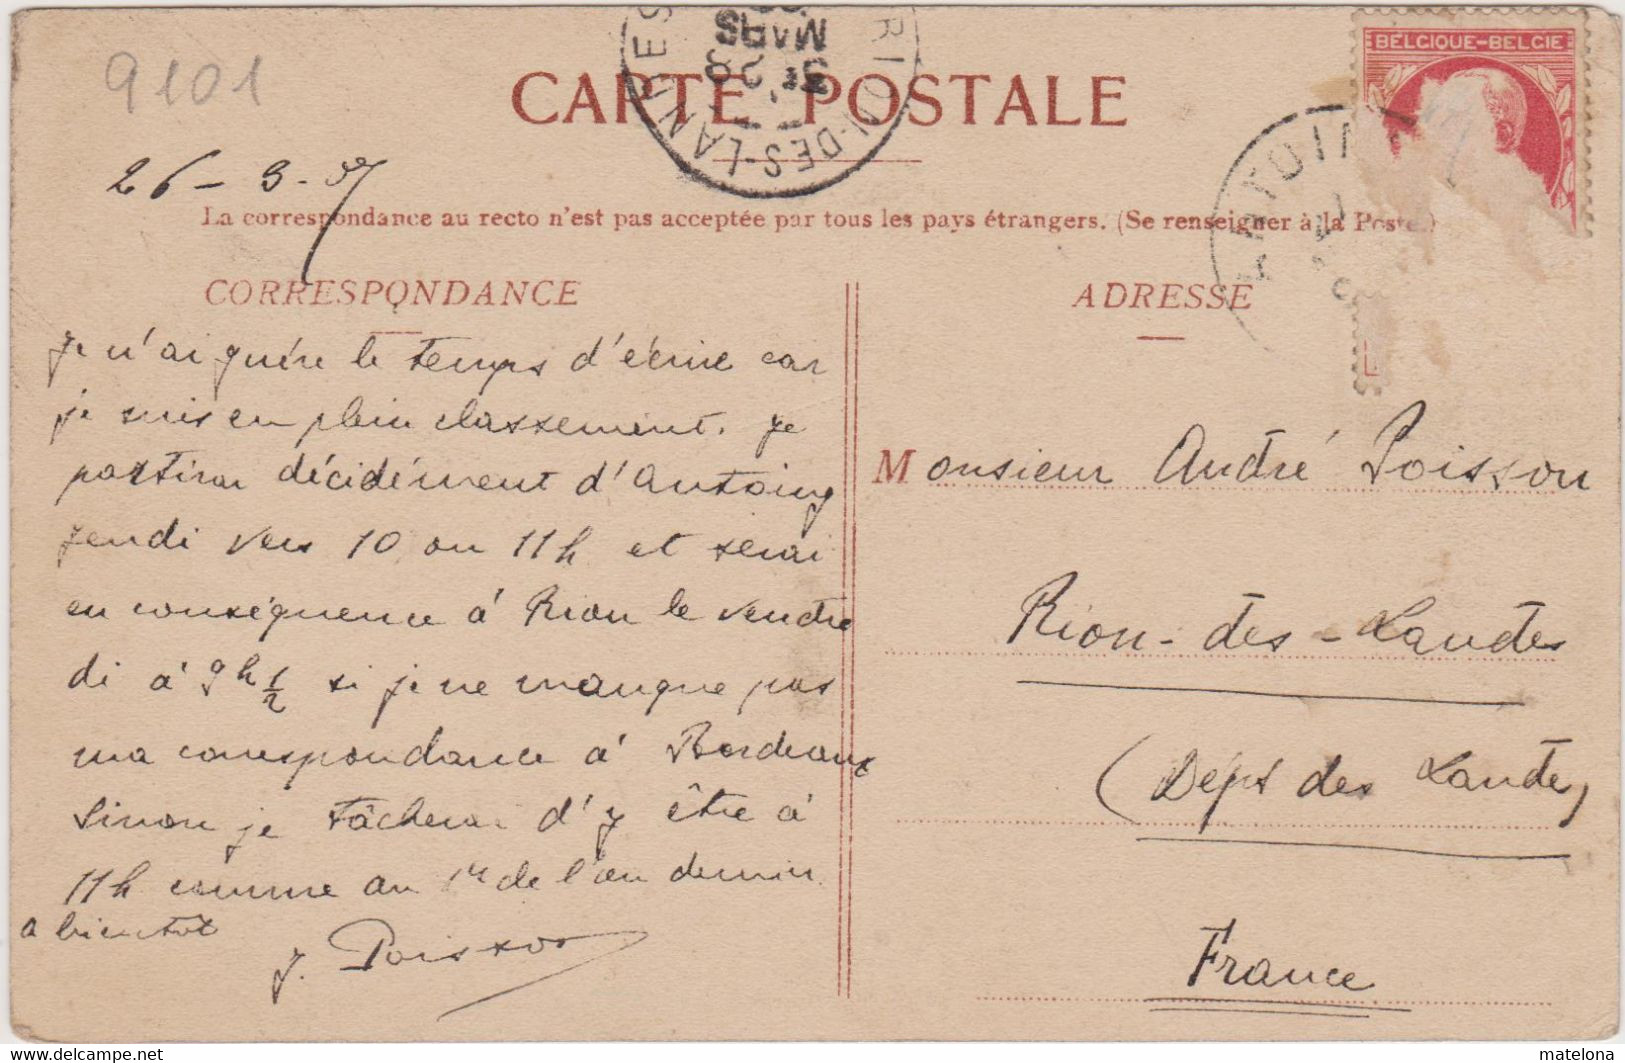 9101
BELGIQUE-BELGIE
RION-DES-LANDES
MARS
CARTE POSTALE
26-3-07
La correspondance au recto n'est pas acceptée par tous les pays étrangers. (Se renseigner à la Poste.)
CORRESPONDANCE
Je n'ai guère le temps d'écrire car
je suis en plein classement. Je
partirai décidément d'Antoing
jeudi vers 10 ou 11h et serai
en conséquence à Rion le vendre
di à 9h 1/2 si je ne manque pas
ma correspondance à Bordeaux
Sinon je tâcherai d'y être à
11h comme au 1er de l'an dernier
a bientôt
J. Poisson
ADRESSE
Monsieur André Poisson
Rion-des-Landes
(Dépt des Landes)
France
www.delcampe.net
matelona